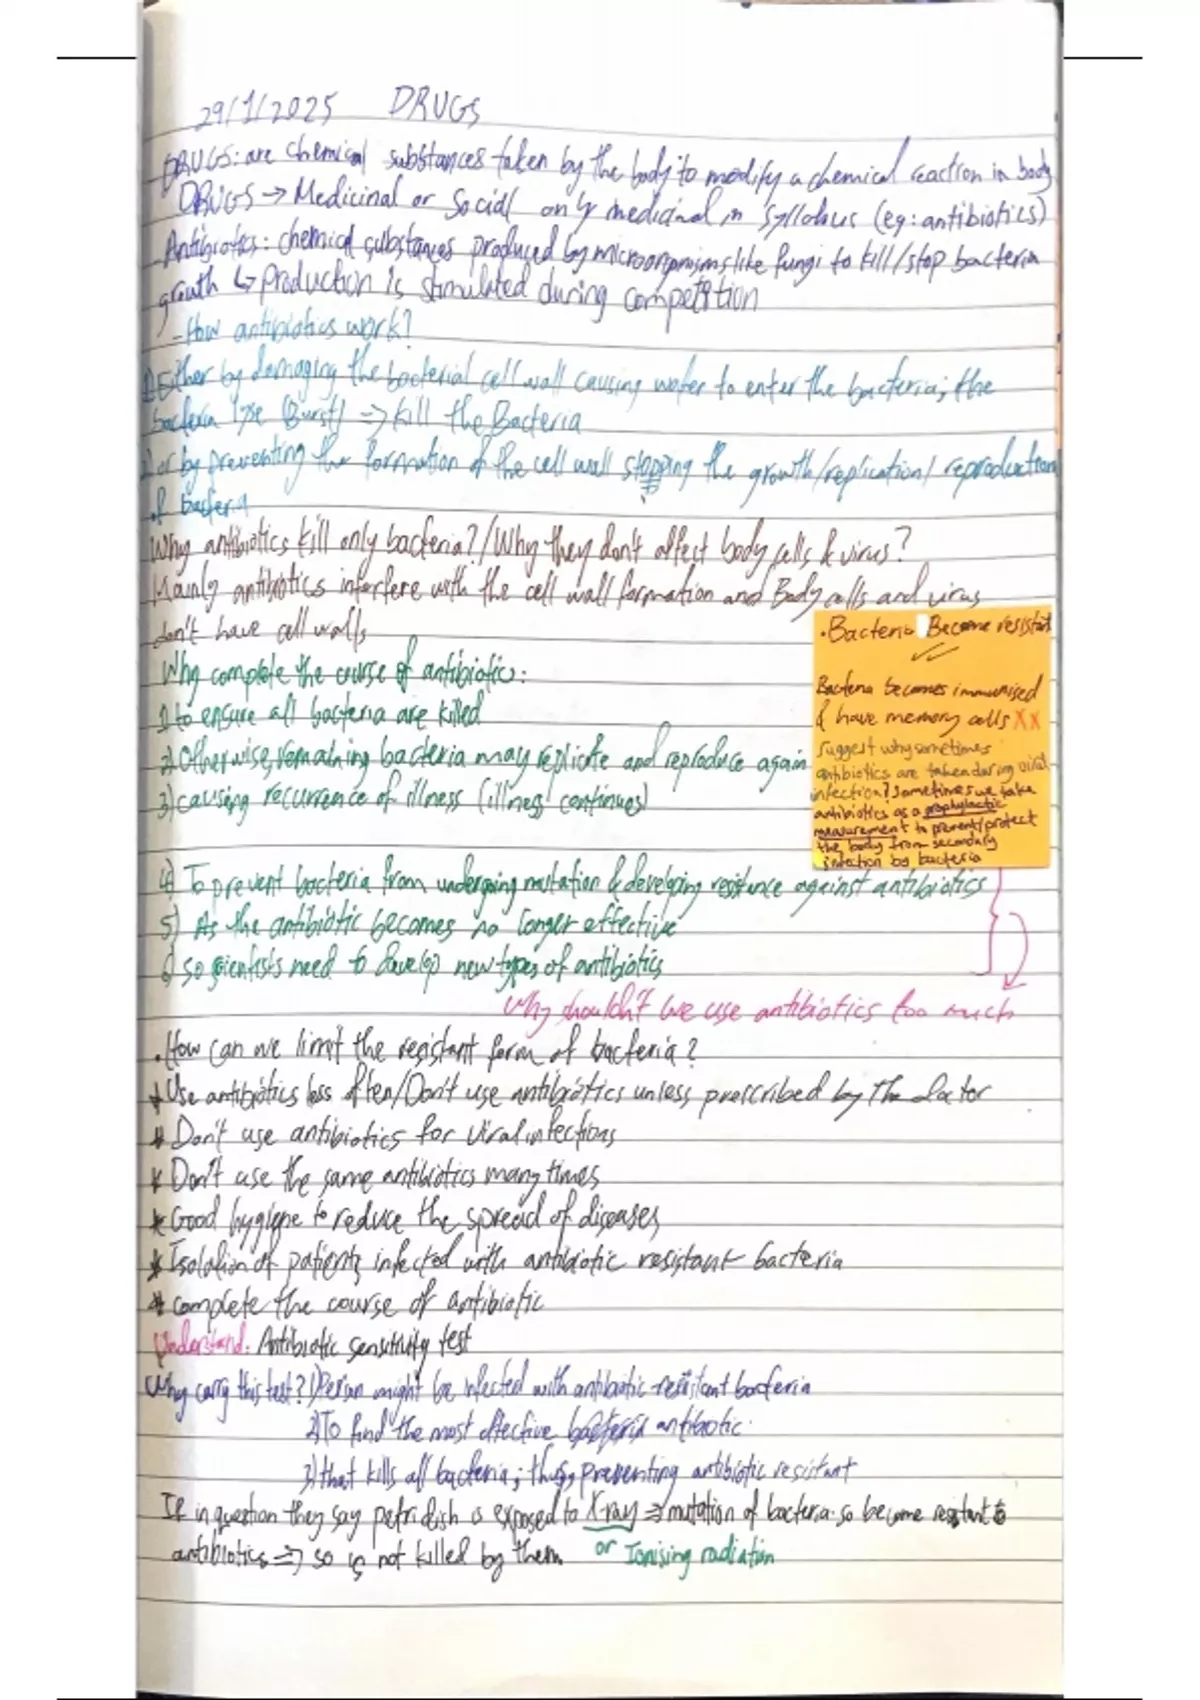 29/1/2025 DRUGS
DRUGS: are chemical substances taken by the body to modify a chemical reaction in body
DRUGS → Medicinal or Social only medicinal in syllabus (eg: antibiotics)
Antibiotics: chemical substances produced by microorganisms like fungi to kill/stop bacteria
growth ↳ production is stimulated during competition
- How antibiotics work?
1) Either by damaging the bacterial cell wall causing water to enter the bacteria; the
bacteria lyse (Burst) => kill the Bacteria
2) or by preventing the formation of the cell wall stopping the growth/replication/reproduction
of bacteria
Why antibiotics kill only bacteria?/Why they don't affect body cells & virus?
Mainly antibiotics interfere with the cell wall formation and Body cells and virus
don't have cell walls
Why complete the course of antibiotic:
1) to ensure all bacteria are killed
2) Otherwise, remaining bacteria may replicate and reproduce again
3) causing recurrence of illness (illness continues)
• Bacteria Become resistant
✓✓
Bacteria becomes immunised
& have memory cells XX
suggest why sometimes
antibiotics are taken during viral
infection? Sometimes we take
antibiotics as a prophylactic
measurement to prevent/protect
the body from secondary
infection by bacteria
4) To prevent bacteria from undergoing mutation & developing resistance against antibiotics
5) As the antibiotic becomes no longer effective
6) so scientists need to develop new types of antibiotics
Why shouldn't we use antibiotics too much
• How can we limit the resistant form of bacteria?
* Use antibiotics less often/Don't use antibiotics unless prescribed by the doctor
* Don't use antibiotics for viral infections
* Don't use the same antibiotics many times
* Good hygiene to reduce the spread of diseases
* Isolation of patients infected with antibiotic resistant bacteria
* complete the course of antibiotic
Understand: Antibiotic sensitivity test
Why carry this test? 1) Person might be infected with antibiotic resistant bacteria
2) To find the most effective bacteria antibiotic
3) that kills all bacteria; thus, preventing antibiotic resistant
If in question they say petridish is exposed to X-ray => mutation of bacteria so become resistant to
antibiotics => so is not killed by them or Ionising radiation